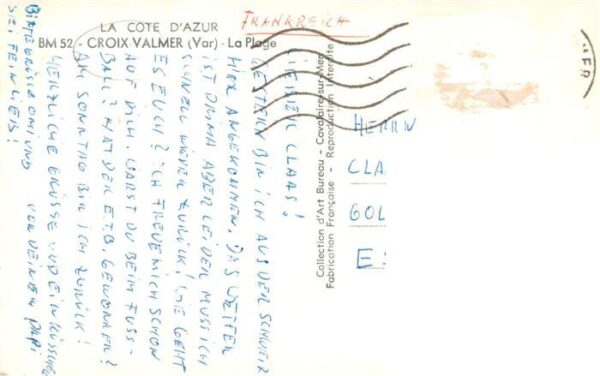 LA COTE D'AZUR
BM 52 - CROIX VALMER (Var) - La Plage
FRANKREICH
LIEBER CLAAS!
GESTERN BIN ICH AUS DER SCHWEIZ
HIER ANGEKOMMEN. DAS WETTER
IST PRIMA ABER LEIDER MUSS ICH
SCHNELL WIEDER ZURÜCK! WIE GEHT
ES EUCH? ICH FREUE MICH SCHON
AUF DICH. WARST DU BEIM FUSS-
BALL? HAT DER E.T.B. GEWONNEN?
AM SONNTAG BIN ICH ZURÜCK!
HERZLICHE GRÜSSE UND EIN KÜSSCHEN
VON DEINEM PAPI
BITTE GRÜSSE OMI UND
SEI FEIN LIEB!
Collection d'Art Bureau - Cavalaire-sur-Mer
Fabrication Française - Reproduction Interdite
HERRN
CLA
GOL
E